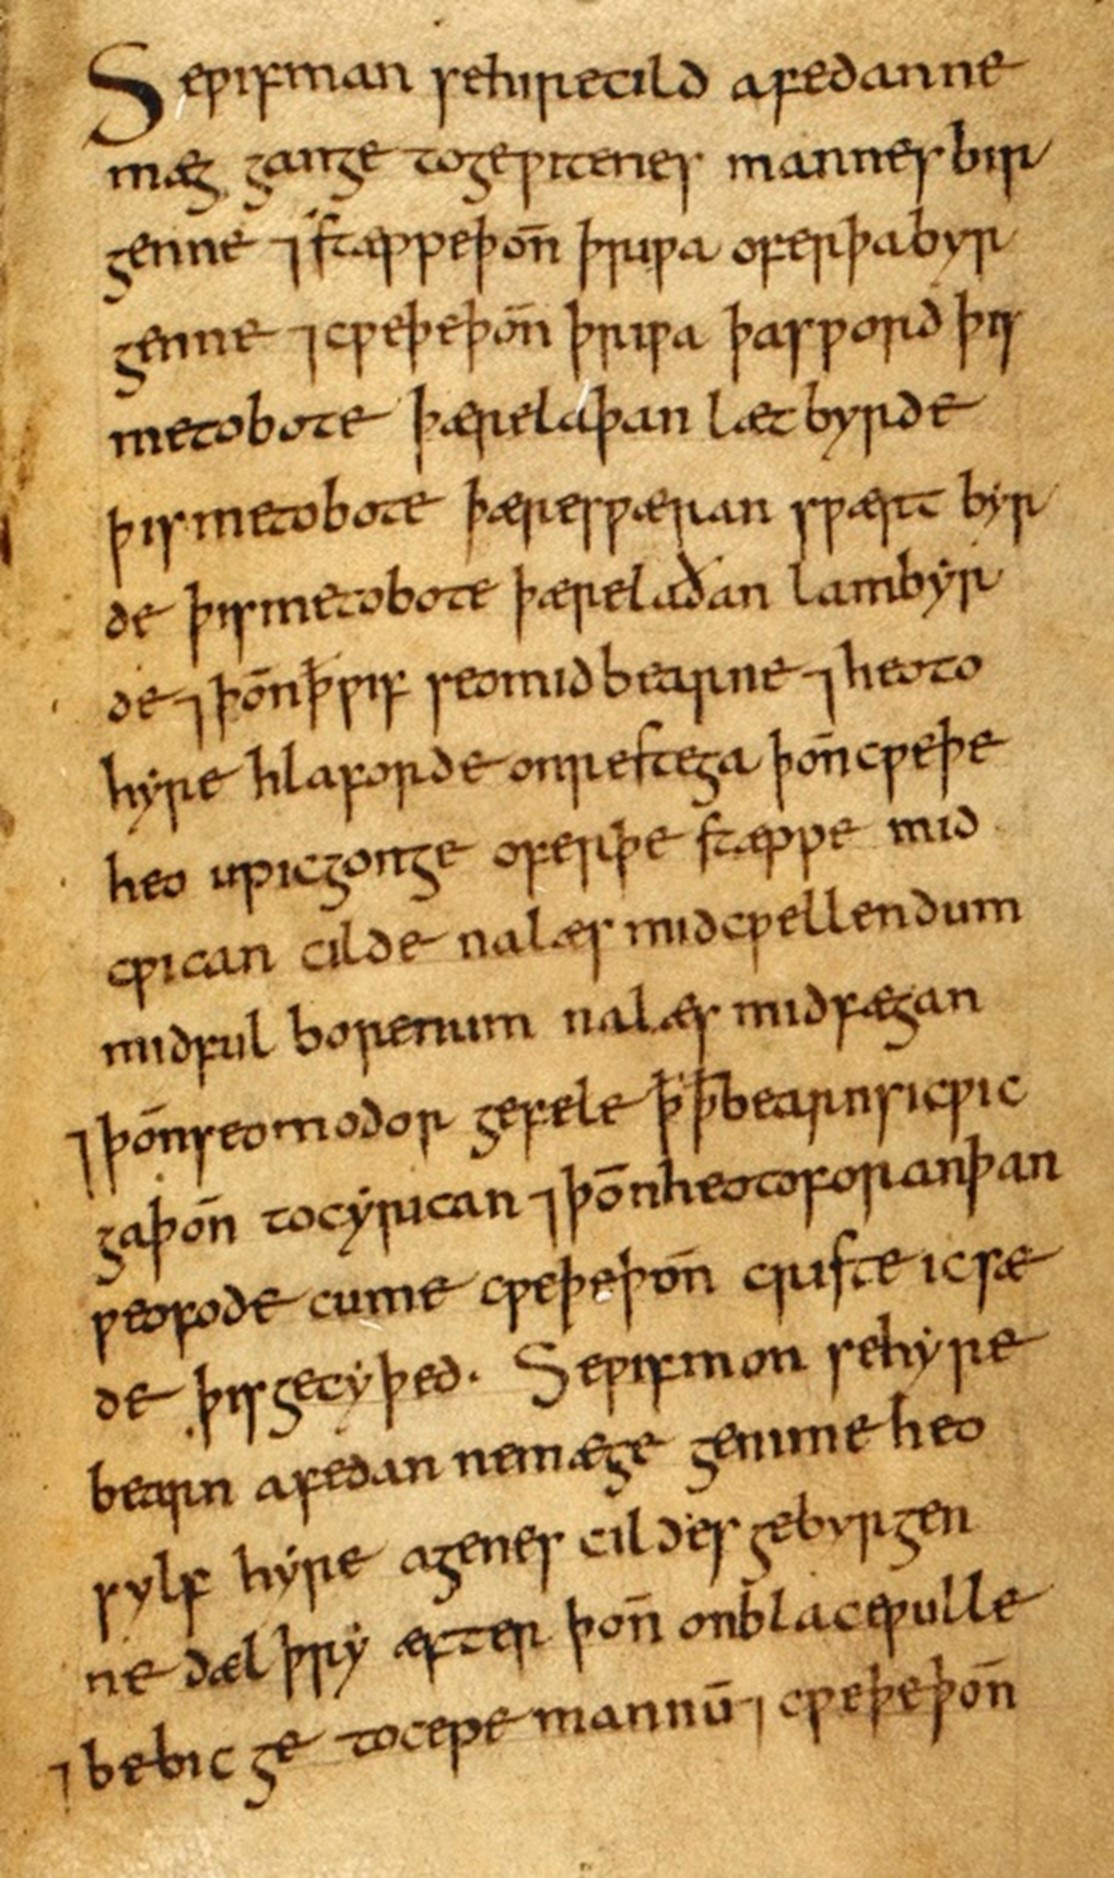 Se ƿifman se hire cild afedan ne
mæg gange to geƿitenes mannes bir
genne ⁊ stæppe þoñ þriƿa ofer þa byr
genne ⁊ cƿeþe þoñ þriƿa þas ƿord þis
me to bote þære laþan læt byrde
þis me to bote þære sƿæran sƿært byr
de þis me to bote þære laðan lambyr
de ⁊ þoñ þ ƿif seo mid bearne ⁊ heo to
hyre hlaforde on reste ga þoñ cƿeþe
heo up ic gonge ofer þe stæppe mid
cƿican cilde nalæs mid cƿellendum
mid ful borenum nalæs mid fægan
⁊ þoñ seo modor gefele þ þ bearn si cƿic
ga þoñ to cyrican ⁊ þoñ heo toforan þan
ƿeofode cume cƿeþe þoñ criste ic sæ
de þis gecyþed. Se ƿifmon se hyre
bearn afedan ne mæge genime heo
sylf hyre agenes cildes gebyrgen
ne dæl þry æfter þoñ on blace ƿulle
⁊ bebicge to cepe mannū ⁊ cƿeþe þoñ